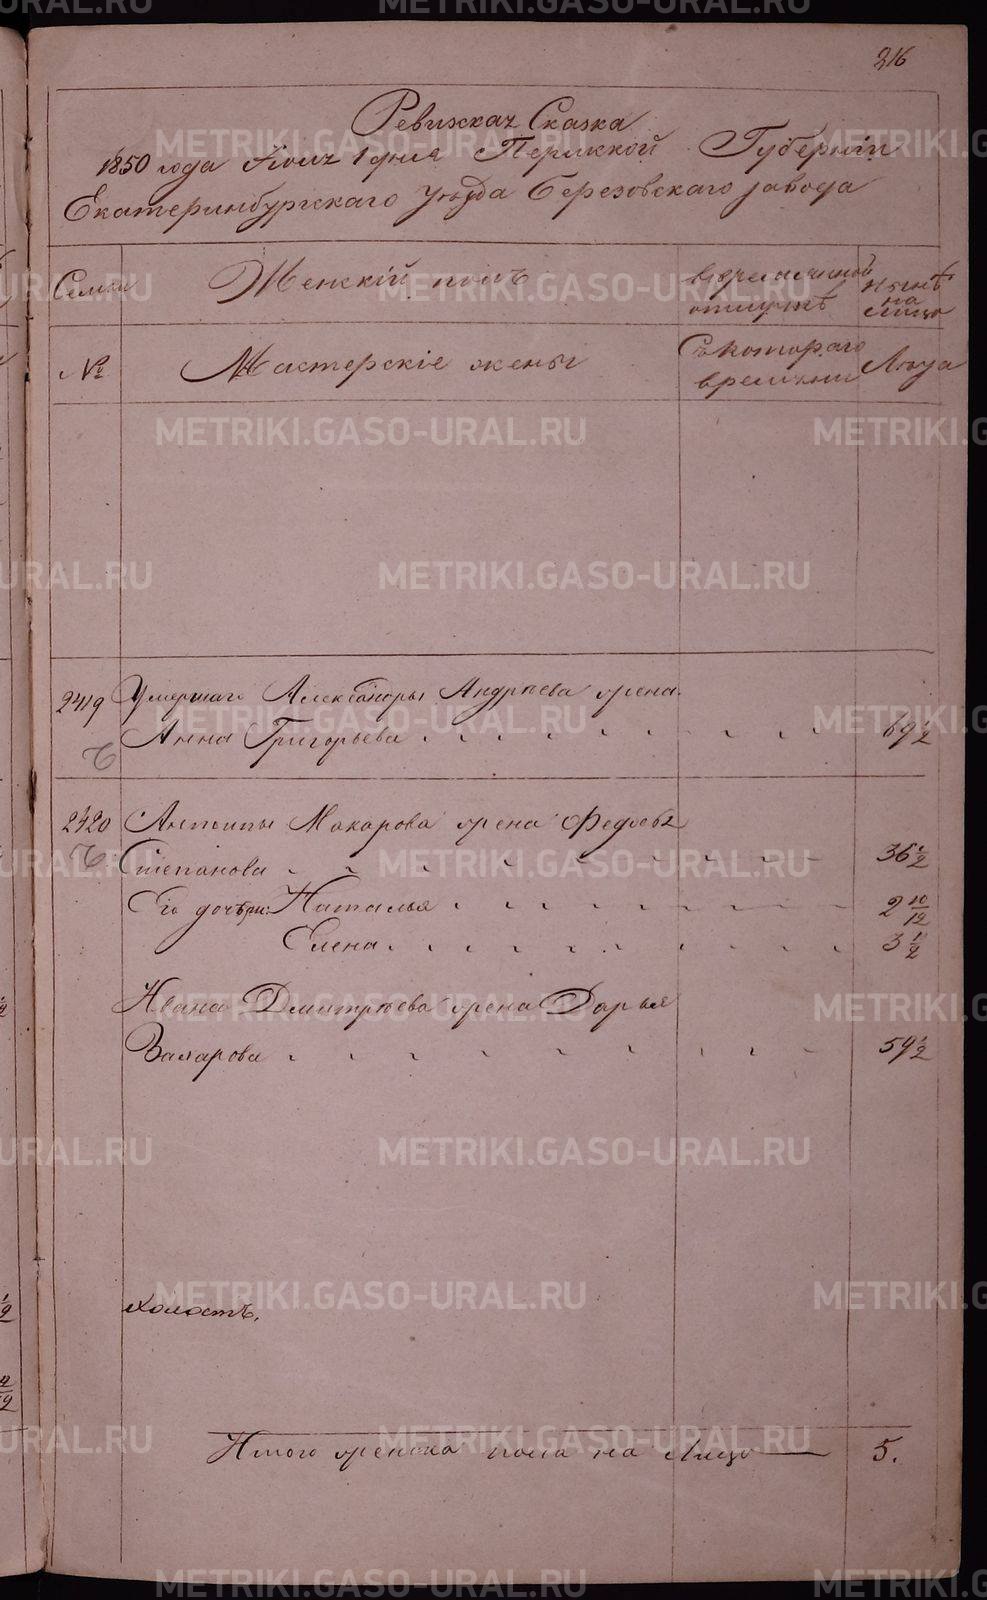 216
Ревизская Сказка
1850 года Іюля 1 дня Пермской Губерніи
Екатеринбургскаго Уѣзда Березовскаго завода
Семьи
Женскій полъ
Во временной отлучкѣ
Нынѣ на лицо
№
Мастерскіе жены
Съ котораго времени
Лѣта
2419 Умершаго Александры Андрѣева жена
Анна Григорьева 69 1/2
2420 Антипы Макарова жена Федосья
Степанова 36 1/2
Его дочѣри: Наталья 2 10/12
Елена 3 1/2
Ивана Дмитрѣева жена Дарья
Захарова 59 1/2
холостъ.
Итого женска пола на лицо 5.
METRIKI.GASO-URAL.RU